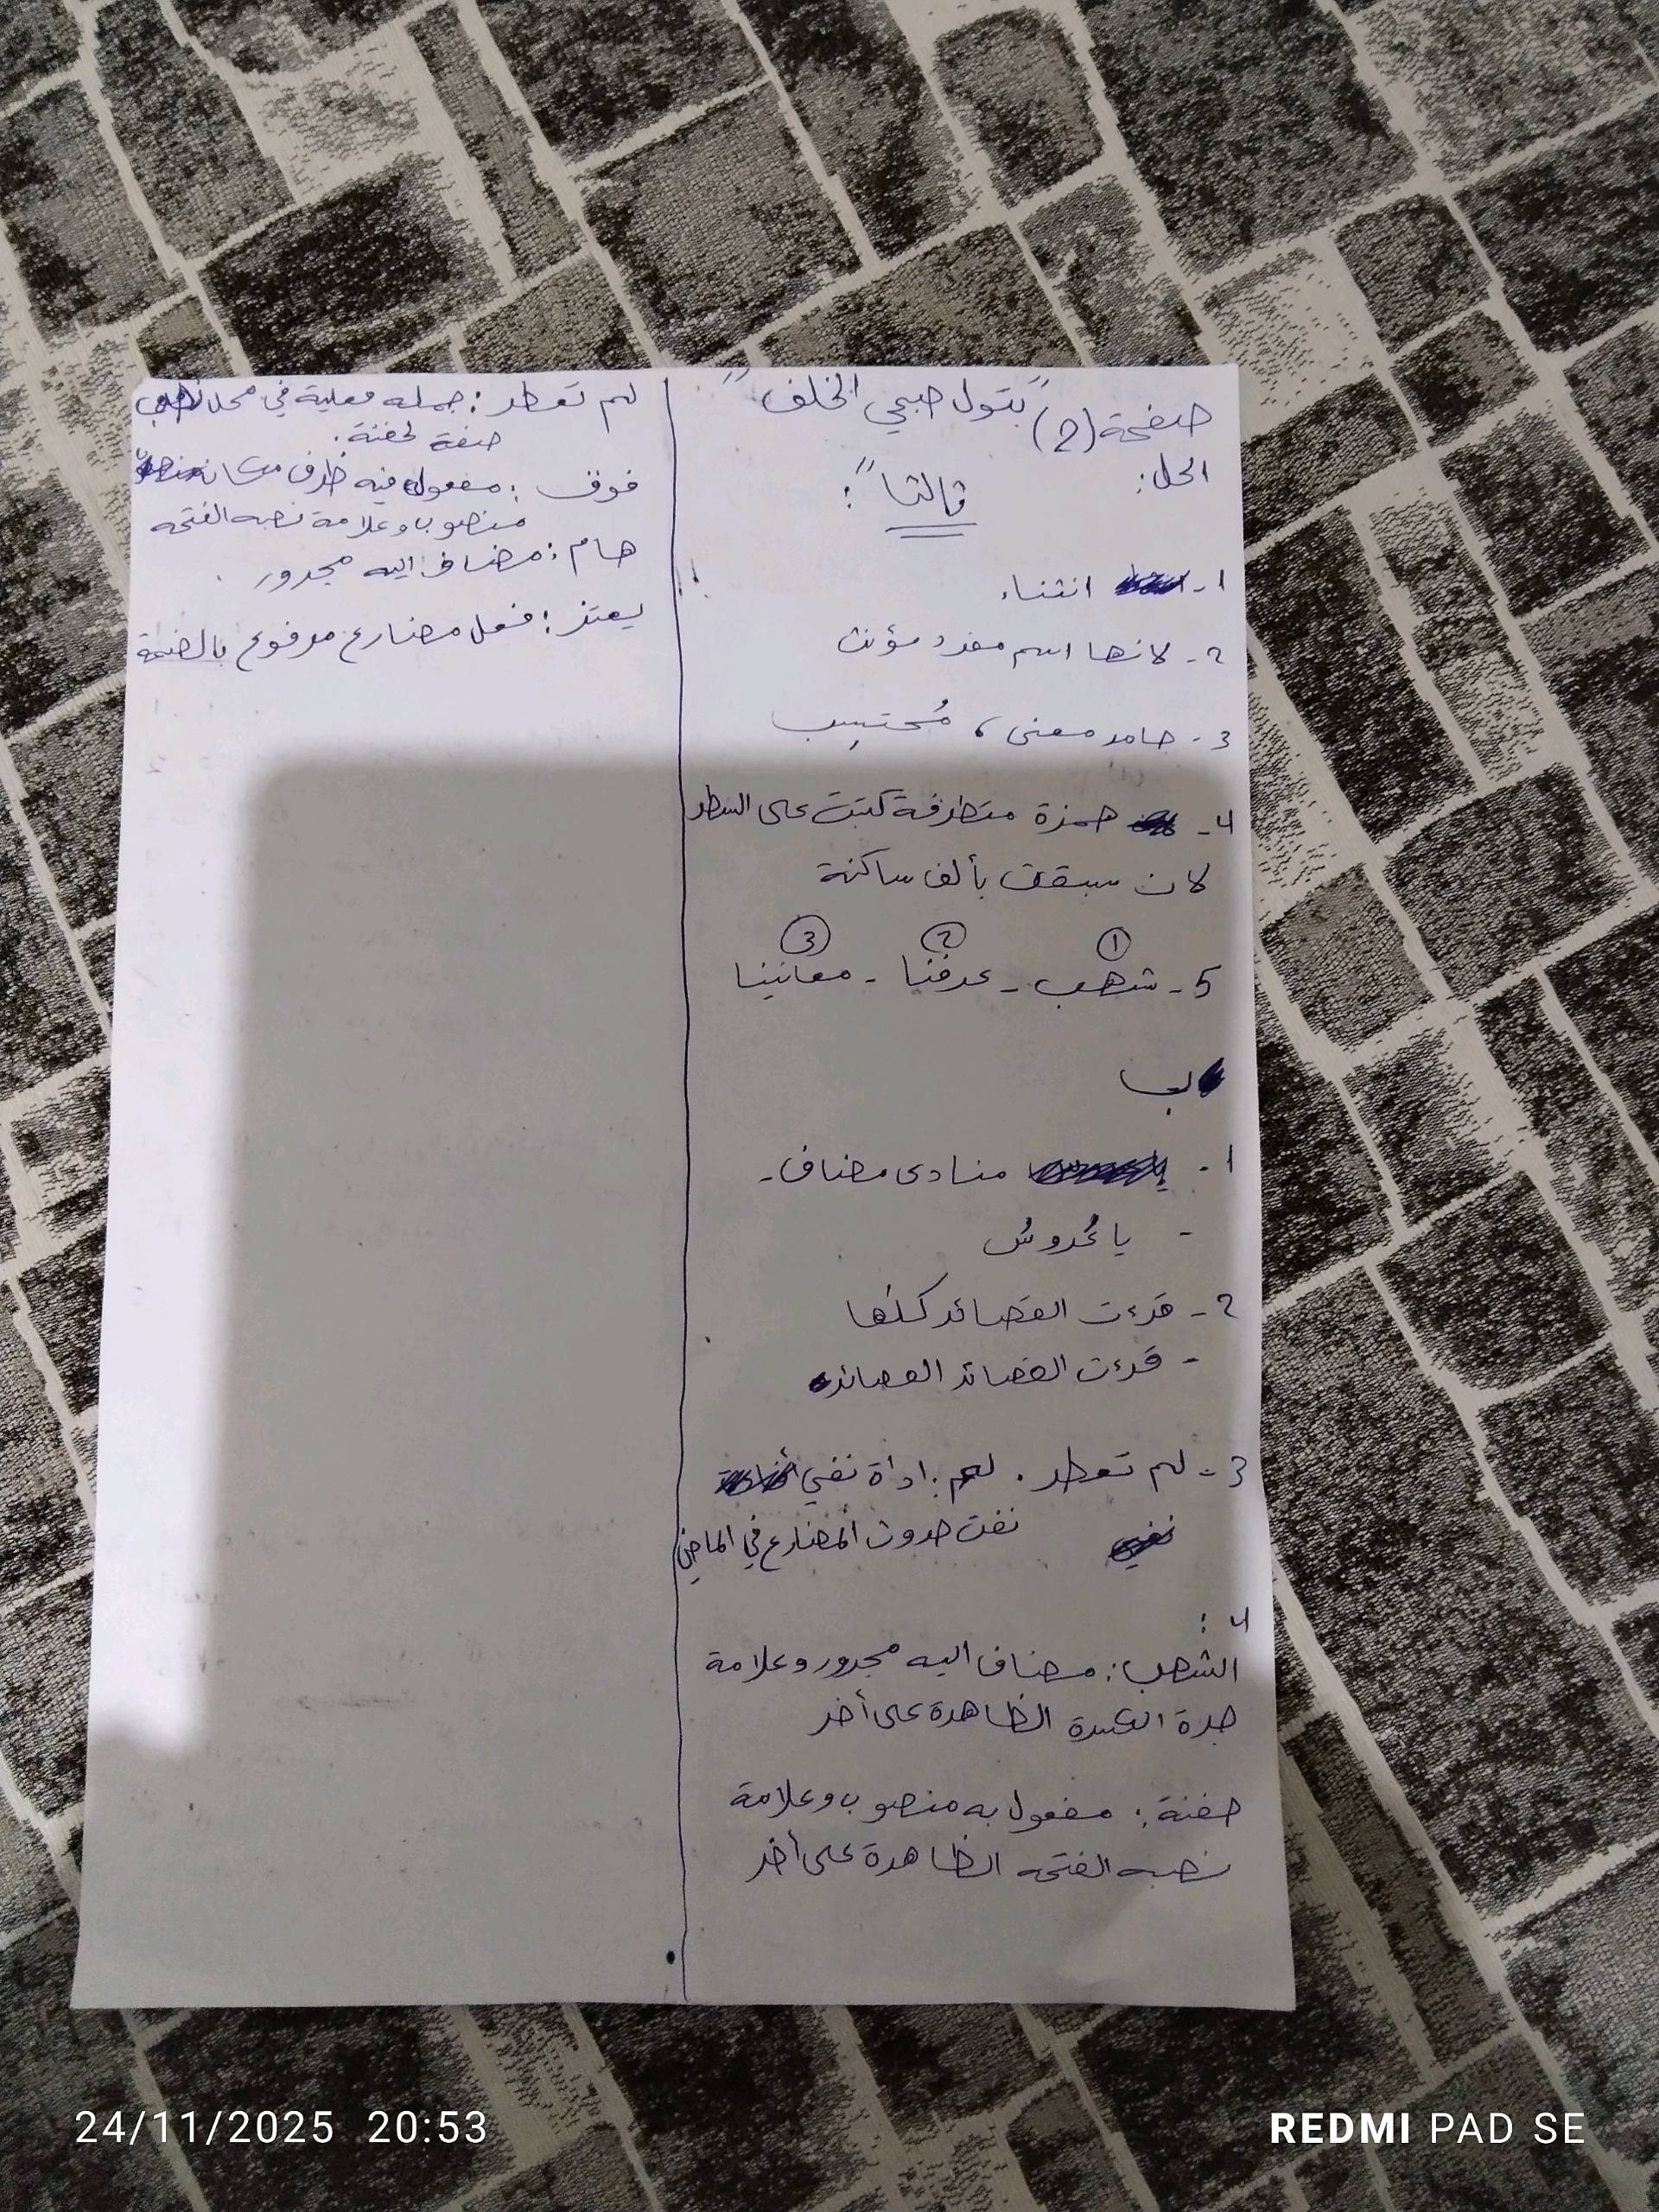 صفحة (2) "بتول صبحي الخلف"
الحل:
ثالثاً:
1- انثناء
2- لانها اسم مفرد مؤنث
3- جامد معنى ، مُحتسِب
4- همزة متطرفة كتبت على السطر
لان سبقت بألف ساكنة
① ② ③
5- شهب - عرفنا - معانينا
ب
1- منادى مضاف -
- يا عُروسُ
2- قرءت القصائد كلها
- قرءت القصائد القصائد
3- لم تعطر . لم : اداة نفي
نفت حدوث المضارع في الماضي
4:
الشهب : مضاف اليه مجرور وعلامة
جرة الكسرة الظاهرة على أخر
حفنة : مفعول به منصوب وعلامة
نصبه الفتحه الظاهرة على أخر
لم تعطر : جمله فعلية في محل نصب
صفة لحفنة .
فوق : مفعول فيه ظرف مكان
منصوب وعلامة نصبه الفتحه
هام : مضاف اليه مجرور .
يعتز : فعل مضارع مرفوع بالضمة
24/11/2025 20:53
REDMI PAD SE